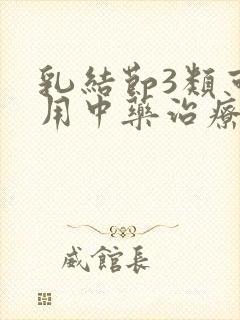 乳結節3類可
用中藥治療
威館長